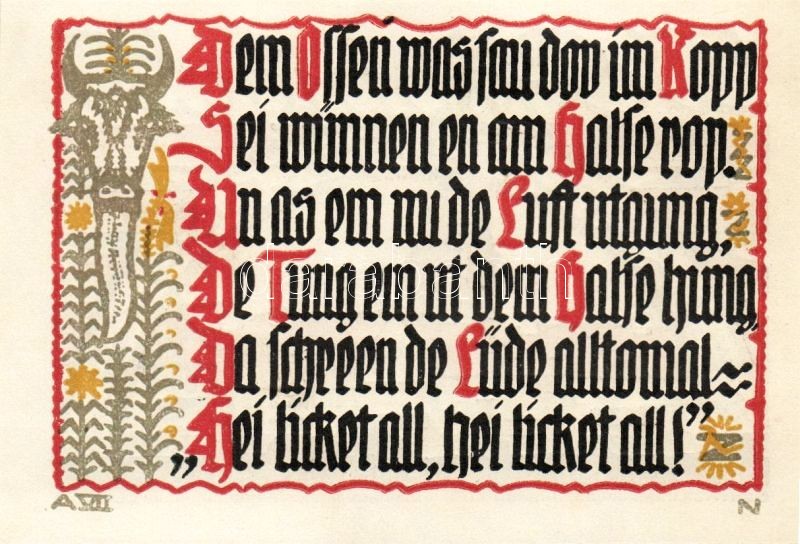 Dem Ossen was sau dov im Kopp
Sei wünnen en am Halse rop.
Un as em nu de Luft utgung,
De Tung em ut dem Halse hung,
Da schreen de Lüde alltomal~
„Hei licket all, hei licket all!”
darabanth
A VII
N